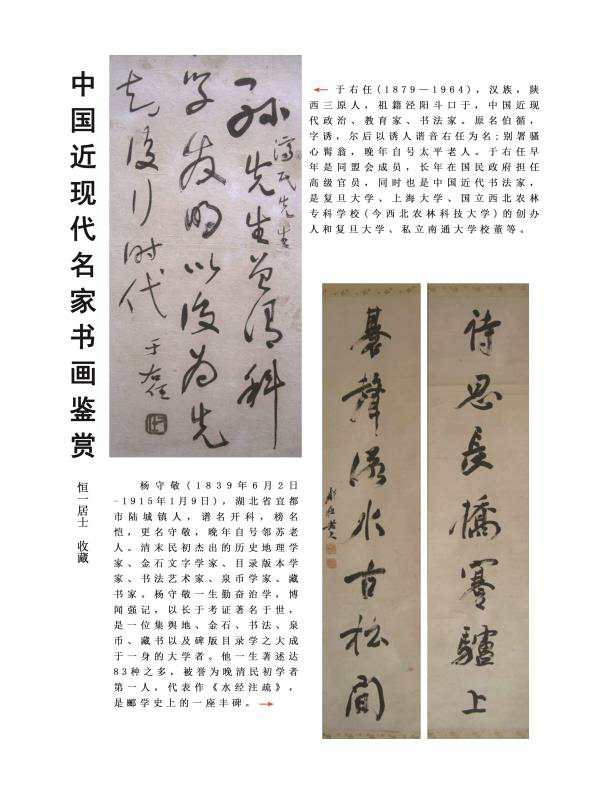 中国近现代名家书画鉴赏
恒一居士 收藏
孫先生曾謂科
學發明以後為先
知後行時代
民先生
于右任
←于右任(1879—1964)，汉族，陕
西三原人，祖籍泾阳斗口于，中国近现
代政治、教育家、书法家。原名伯循，
字诱，尔后以诱人谐音右任为名;别署骚
心髯翁，晚年自号太平老人。于右任早
年是同盟会成员，长年在国民政府担任
高级官员，同时也是中国近代书法家，
是复旦大学、上海大学、国立西北农林
专科学校(今西北农林科技大学)的创办
人和复旦大学、私立南通大学校董等。
詩思長橋蹇驢上
碁聲流水古松間
鄰蘇老人
杨守敬(1839年6月2日
-1915年1月9日)，湖北省宜都
市陆城镇人，谱名开科，榜名
恺，更名守敬，晚年自号邻苏老
人。清末民初杰出的历史地理学
家、金石文字学家、目录版本学
家、书法艺术家、泉币学家、藏
书家。杨守敬一生勤奋治学，博
闻强记，以长于考证著名于世，
是一位集舆地、金石、书法、泉
币、藏书以及碑版目录学之大成
于一身的大学者。他一生著述达
83种之多，被誉为晚清民初学者
第一人，代表作《水经注疏》，
是郦学史上的一座丰碑。→